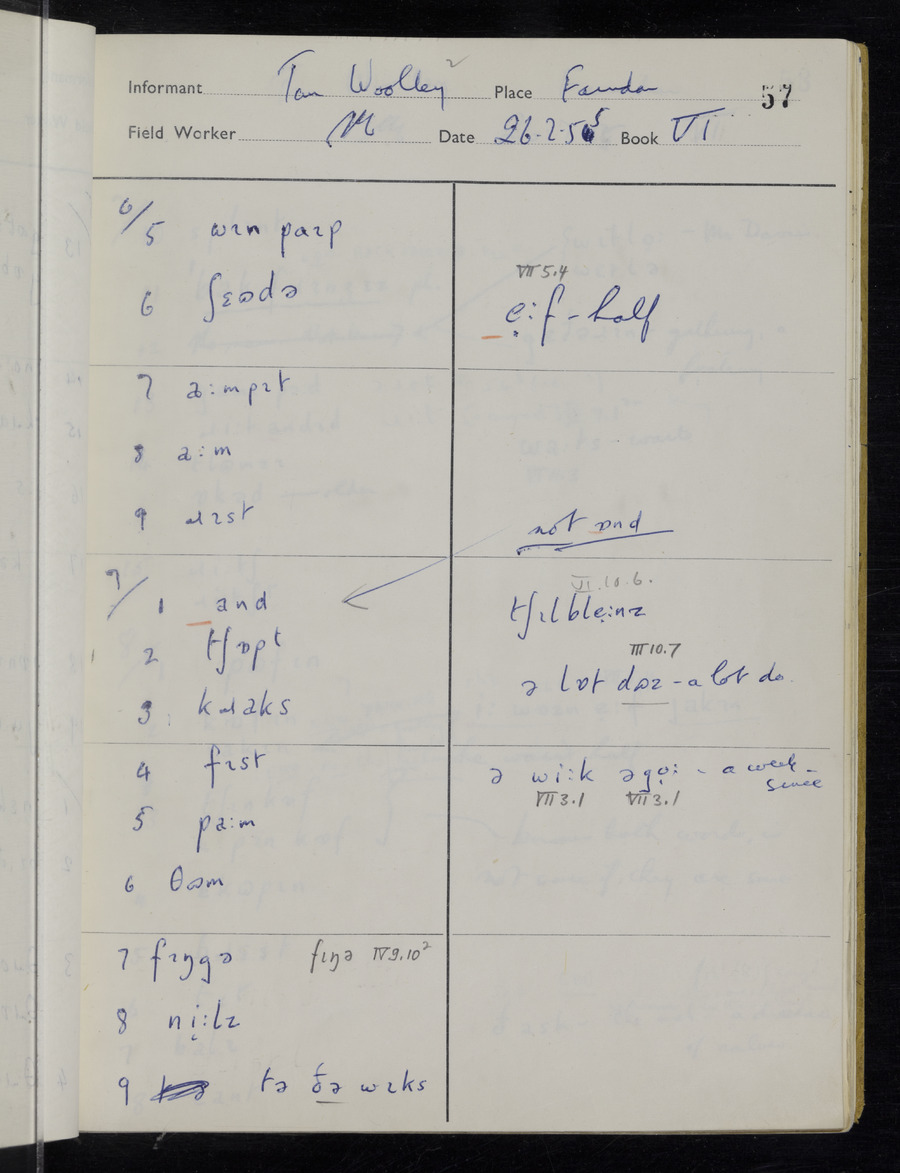 Informant Tom Woolley² Place Farndon 57
Field Worker Date 26.2.55 Book VI
6/5 wɪn paɪp
6 ʃɛədə
VII 5.4
ẹ:f - half
7 a:mpɪt
8 a:m
9 ɹɪst
not ɒnd
7/1 and
VI.10.6.
tʃɪlblẹɪnz
2 tʃɒpt
III 10.7
ə lɒt dʊz - a lot do.
3 kɹaks
4 fɪst
ə wi:k əgọ: - a week since
VII 3.1 VII 3.1
5 pa:m
6 θʊm
7 fɪŋgə fɪŋə IV 9.10²
8 nị:lz
9 tə ðə wɪks